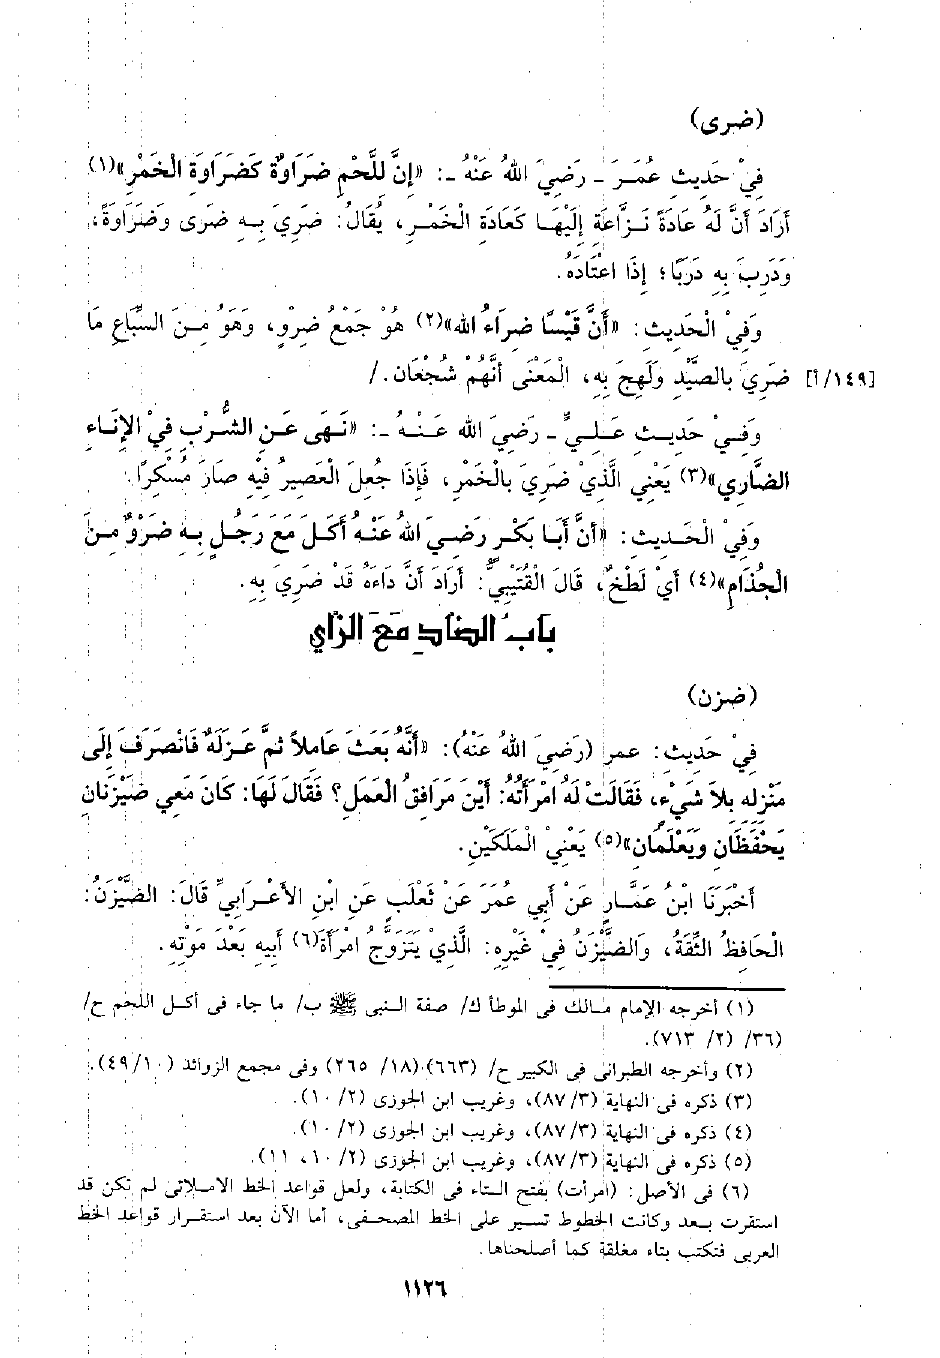 (ضرى)
فِيْ حَدِيثِ عُمَرَ ـ رَضِيَ اللهُ عَنْهُ ـ: «إنَّ لِلَّحْمِ ضَرَاوَةً كَضَرَاوَةِ الْخَمْرِ»(١)
أَرَادَ أَنَّ لَهُ عَادَةً نَزَّاعَةً إلَيْهَا كَعَادَةِ الْخَمْرِ، يُقَالُ: ضَرِيَ بِهِ ضَرًى وَضَرَاوَةً،
وَدَرِبَ بِهِ دَرَبًا؛ إذَا اعْتَادَهُ.
وَفِيْ الْحَدِيثِ: «أَنَّ قَيْسًا ضِرَاءُ اللهِ»(٢) هُوَ جَمْعُ ضِرْوٍ، وَهُوَ مِنَ السِّبَاعِ مَا
[١٤٩/أ] ضَرِيَ بالصَّيْدِ وَلَهِجَ بِهِ، الْمَعْنَى أَنَّهُمْ شُجْعَان./
وَفِيْ حَدِيثِ عَلِيٍّ ـ رَضِيَ الله عَنْهُ ـ: «نَهَى عَنِ الشُّرْبِ فِيْ الإنَاءِ
الضَّارِي»(٣) يَعْنِي الَّذِيْ ضَرِيَ بِالْخَمْرِ، فَإذَا جُعِلَ الْعَصِيرُ فِيْهِ صَارَ مُسْكِرًا.
وَفِيْ الْحَدِيثِ: «أنَّ أَبَا بَكْرٍ رَضِيَ اللهُ عَنْهُ أَكَلَ مَعَ رَجُلٍ بِهِ ضَرْوٌ مِنَ
الْجُذَامِ»(٤) أيْ لَطْخٌ، قَالَ الْقُتَيْبِيُّ: أَرَادَ أَنَّ دَاءَهُ قَدْ ضَرِيَ بِهِ.
بَابُ الضَادِ مَعَ الزَّاي
(ضزن)
فِيْ حَدِيثِ: عمر (رَضِيَ اللهُ عَنْهُ): «أنَّهُ بَعَثَ عَامِلاً ثمَّ عَزلَهُ فَانْصَرَفَ إلَى
مَنْزِلِهِ بِلاَ شَيْءٍ، فَقَالَتْ لَهُ امْرَأَتُهُ: أيْنَ مَرَافِقُ الْعَمَلِ؟ فَقَالَ لَهَا: كَانَ مَعِي ضَيْزَنَانِ
يَحْفَظَانِ وَيَعْلَمَانِ»(٥) يَعْنِيْ الْمَلَكَيْنِ.
أَخْبَرَنَا ابْنُ عَمَّارٍ عَنْ أبِي عُمَرَ عَنْ ثَعْلَبٍ عَنِ ابْنِ الأعْرَابِيِّ قَالَ: الضَّيْزَنُ:
الْحَافِظُ الثِّقَةُ، وَالضَّيْزَنُ فِيْ غَيْرِهِ: الَّذِيْ يَتَزَوَّجُ امْرَأَةَ(٦) أَبِيهِ بَعْدَ مَوْتِهِ.
(١) أخرجه الإمام مالك فى الموطأ ك/ صفة النبى ﷺ ب/ ما جاء فى أكل اللحم ح/
(٣٦/ (٢/ ٧١٣).
(٢) وأخرجه الطبرانى فى الكبير ح/ (٦٦٣)،(١٨/ ٢٦٥) وفى مجمع الزوائد (٤٩/١٠).
(٣) ذكره فى النهاية (٨٧/٣)، وغريب ابن الجوزى (١٠/٢).
(٤) ذكره فى النهاية (٨٧/٣)، وغريب ابن الجوزى (١٠/٢).
(٥) ذكره فى النهاية (٨٧/٣)، وغريب ابن الجوزى (١٠/٢، ١١).
(٦) فى الأصل: (امرأت) بفتح التاء فى الكتابة، ولعل قواعد الخط الاملائى لم تكن قد
استقرت بعد وكانت الخطوط تسير على الخط المصحفى، أما الآن بعد استقرار قواعد الخط
العربى فتكتب بتاء مغلقة كما أصلحناها.
١١٢٦